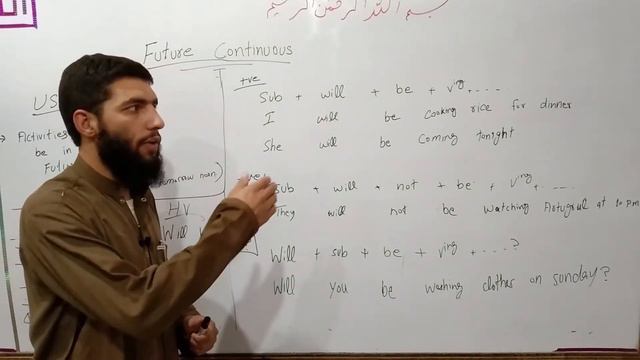 بسم الله الرحمن الرحيم
Future Continuous
US
Activities
be in
Futur
tomorrow noon)
HV
Will
+ve
Sub + will + be + ving + ....
I will be cooking rice for dinner
She will be coming tonight
Sub + will + not + be + ving + ....
They will not be watching Artugral at 10 pm
Will + sub + be + ving + ....?
Will you be washing clothes on sunday?